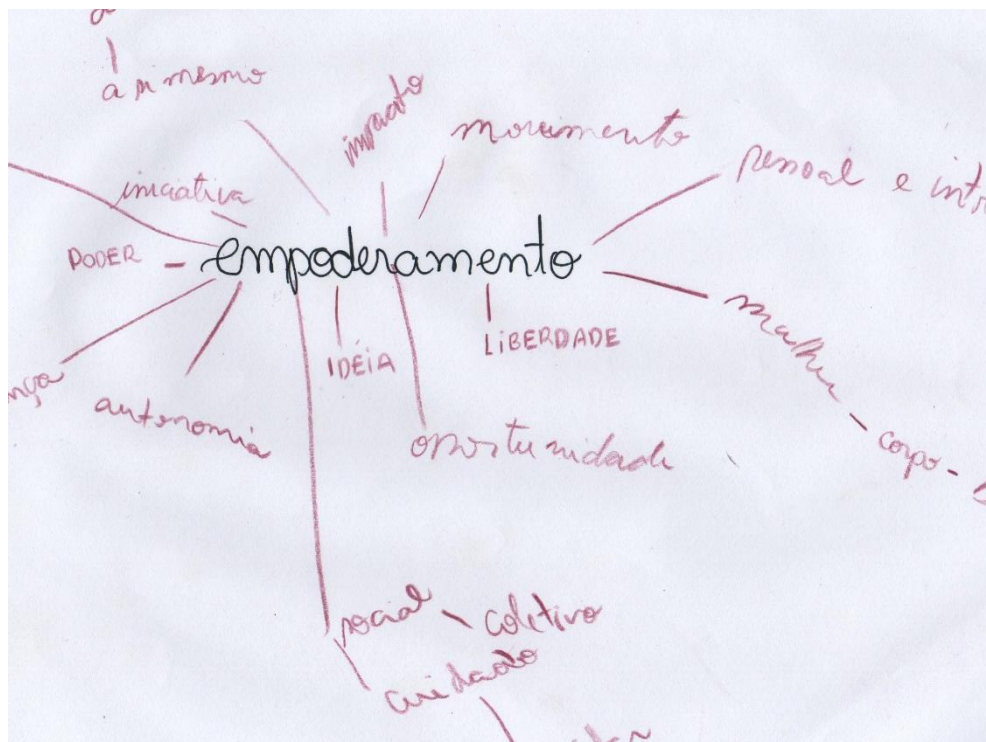 a si mesmo
impacto
movimento
pessoal e intr
iniciativa
PODER
empoderamento
IDÉIA
LIBERDADE
mulher
nça
autonomia
oportunidade
corpo
social
coletivo
cuidado